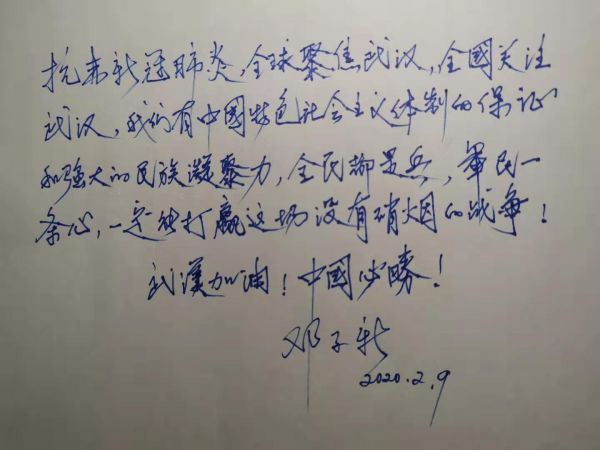 抗击新冠肺炎，全球聚焦武汉，全國关注
武汉，我们有中國特色社会主义体制的保证
和强大的民族凝聚力，全民都是兵，军民一
条心，一定能打赢这场没有硝烟的战争！
武漢加油！中國必勝！
邓子新
2020.2.9